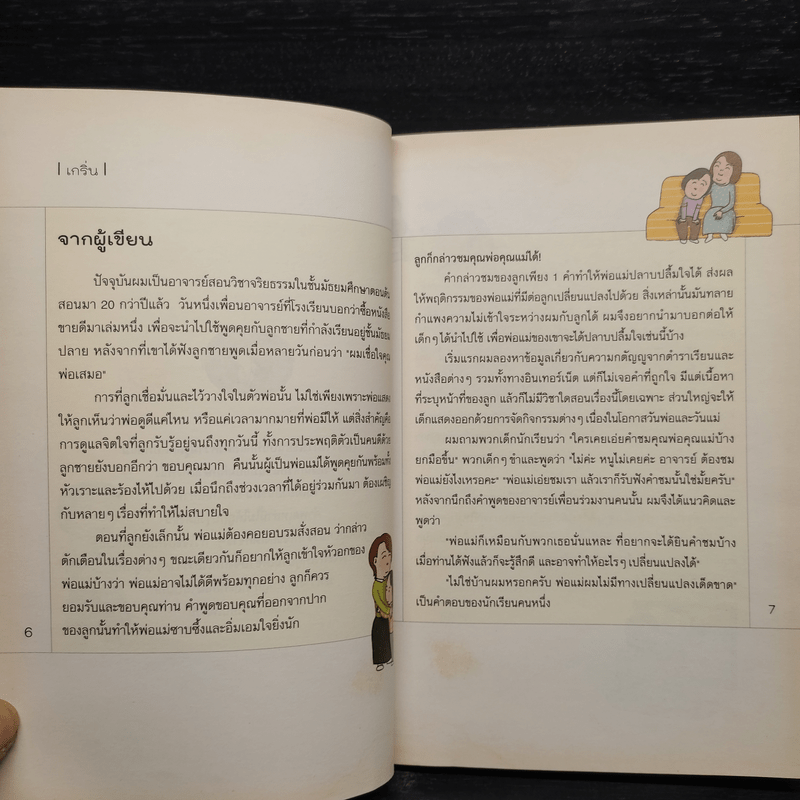 | เกริ่น |
จากผู้เขียน
ปัจจุบันผมเป็นอาจารย์สอนวิชาจริยธรรมในชั้นมัธยมศึกษาตอนต้น
สอนมา 20 กว่าปีแล้ว วันหนึ่งเพื่อนอาจารย์ที่โรงเรียนบอกว่าซื้อหนังสือ
ขายดีมาเล่มหนึ่ง เพื่อจะนำไปใช้พูดคุยกับลูกชายที่กำลังเรียนอยู่ชั้นมัธยม
ปลาย หลังจากที่เขาได้ฟังลูกชายพูดเมื่อหลายวันก่อนว่า "ผมเชื่อใจคุณ
พ่อเสมอ"
การที่ลูกเชื่อมั่นและไว้วางใจในตัวพ่อนั้น ไม่ใช่เพียงเพราะพ่อแสดง
ให้ลูกเห็นว่าพ่อดูดีแค่ไหน หรือแค่เวลามากมายที่พ่อมีให้ แต่สิ่งสำคัญคือ
การดูแลจิตใจที่ลูกรับรู้อยู่จนถึงทุกวันนี้ ทั้งการประพฤติตัวเป็นคนดีด้วย
ลูกชายยังบอกอีกว่า ขอบคุณมาก คืนนั้นผู้เป็นพ่อแม่ได้พูดคุยกันพร้อมทั้ง
หัวเราะและร้องไห้ไปด้วย เมื่อนึกถึงช่วงเวลาที่ได้อยู่ร่วมกันมา ต้องเผชิญ
กับหลายๆ เรื่องที่ทำให้ไม่สบายใจ
ตอนที่ลูกยังเล็กนั้น พ่อแม่ต้องคอยอบรมสั่งสอน ว่ากล่าว
ตักเตือนในเรื่องต่างๆ ขณะเดียวกันก็อยากให้ลูกเข้าใจหัวอกของ
พ่อแม่บ้างว่า พ่อแม่อาจไม่ได้ดีพร้อมทุกอย่าง ลูกก็ควร
ยอมรับและขอบคุณท่าน คำพูดขอบคุณที่ออกจากปาก
ของลูกนั้นทำให้พ่อแม่ซาบซึ้งและอิ่มเอมใจยิ่งนัก
6
ลูกก็กล่าวชมคุณพ่อคุณแม่ได้!
คำกล่าวชมของลูกเพียง 1 คำทำให้พ่อแม่ปลาบปลื้มใจได้ ส่งผล
ให้พฤติกรรมของพ่อแม่ที่มีต่อลูกเปลี่ยนแปลงไปด้วย สิ่งเหล่านั้นมันทลาย
กำแพงความไม่เข้าใจระหว่างผมกับลูกได้ ผมจึงอยากนำมาบอกต่อให้
เด็กๆ ได้นำไปใช้ เพื่อพ่อแม่ของเขาจะได้ปลาบปลื้มใจเช่นนี้บ้าง
เริ่มแรกผมลองหาข้อมูลเกี่ยวกับความกตัญญูจากตำราเรียนและ
หนังสือต่างๆ รวมทั้งทางอินเทอร์เน็ต แต่ก็ไม่เจอคำที่ถูกใจ มีแต่เนื้อหา
ที่ระบุหน้าที่ของลูก แล้วก็ไม่มีวิชาใดสอนเรื่องนี้โดยเฉพาะ ส่วนใหญ่จะให้
เด็กแสดงออกด้วยการจัดกิจกรรมต่างๆ เนื่องในโอกาสวันพ่อและวันแม่
ผมถามพวกเด็กนักเรียนว่า "ใครเคยเอ่ยคำชมคุณพ่อคุณแม่บ้าง
ยกมือขึ้น" พวกเด็กๆ ขำและพูดว่า "ไม่ค่ะ หนูไม่เคยค่ะ อาจารย์ ต้องชม
พ่อแม่ยังไงเหรอคะ" "พ่อแม่เอ่ยชมเรา แล้วเราก็รับฟังคำชมนั้นใช่มั้ยครับ"
หลังจากนึกถึงคำพูดของอาจารย์เพื่อนร่วมงานคนนั้น ผมจึงได้แนวคิดและ
พูดว่า
"พ่อแม่ก็เหมือนกับพวกเธอนั่นแหละ ที่อยากจะได้ยินคำชมบ้าง
เมื่อท่านได้ฟังแล้วก็จะรู้สึกดี และอาจทำให้อะไรๆ เปลี่ยนแปลงได้"
"ไม่ใช่บ้านผมหรอกครับ พ่อแม่ผมไม่มีทางเปลี่ยนแปลงเด็ดขาด"
เป็นคำตอบของนักเรียนคนหนึ่ง
7